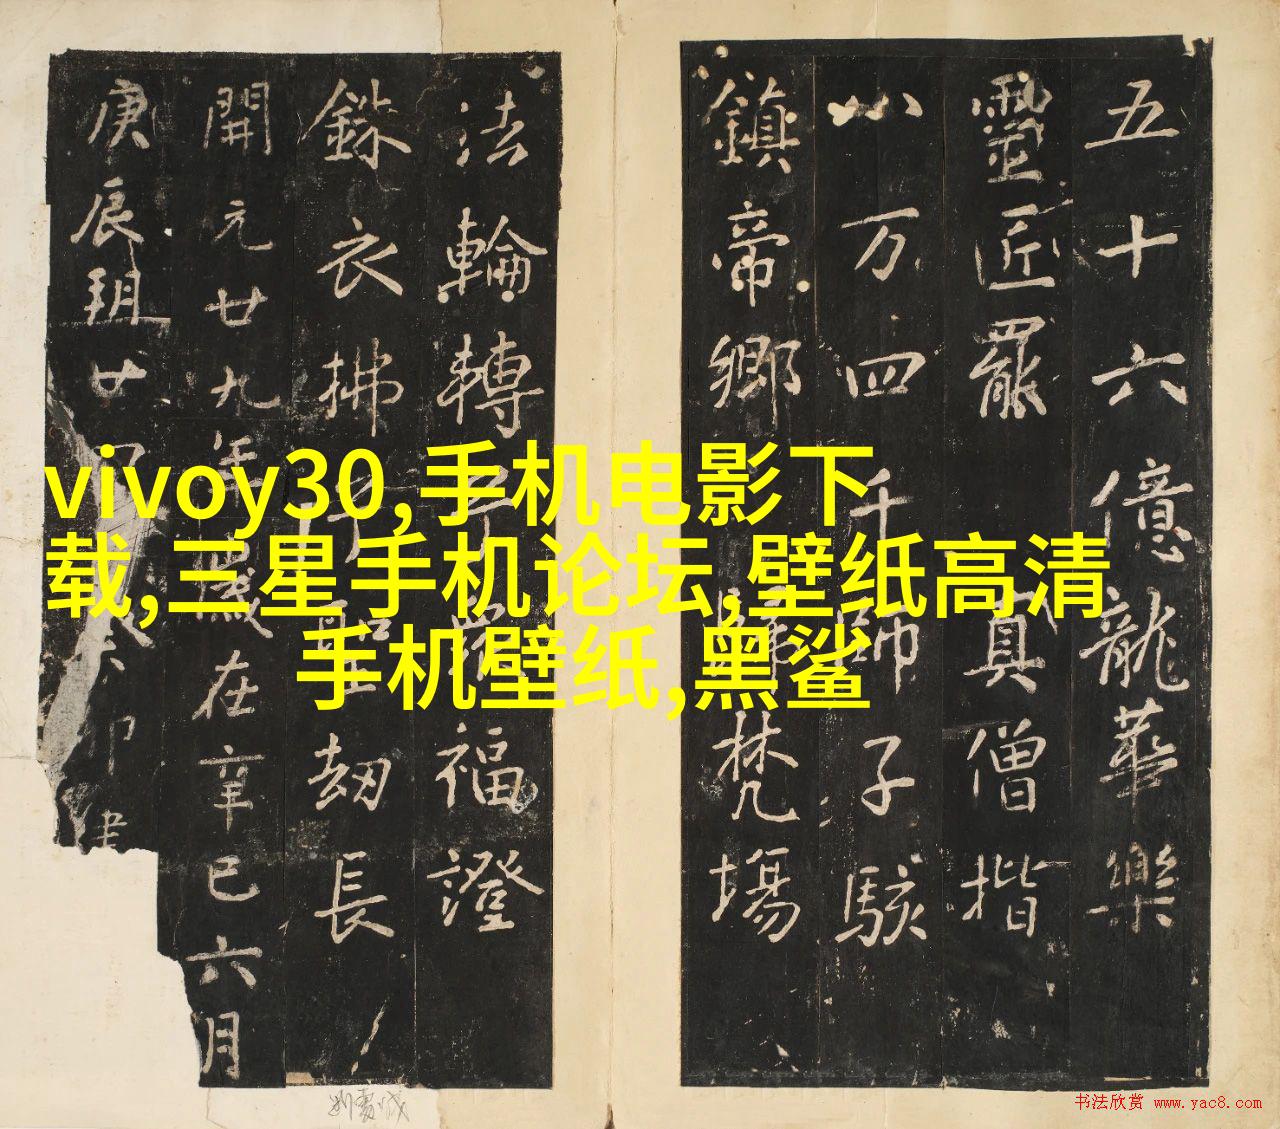 vivoy30,手机电影下
载,三星手机论坛,壁纸高清
手机壁纸,黑鲨
五十六億龍華樂
靈匠罷真僧揩
八万四千師子駭
鎮帝鄉梵場
法輪轉福證
銖衣拂劫長
開元廿九年歲在辛巳六月
庚辰朔廿
书法欣赏 www.yac8.com